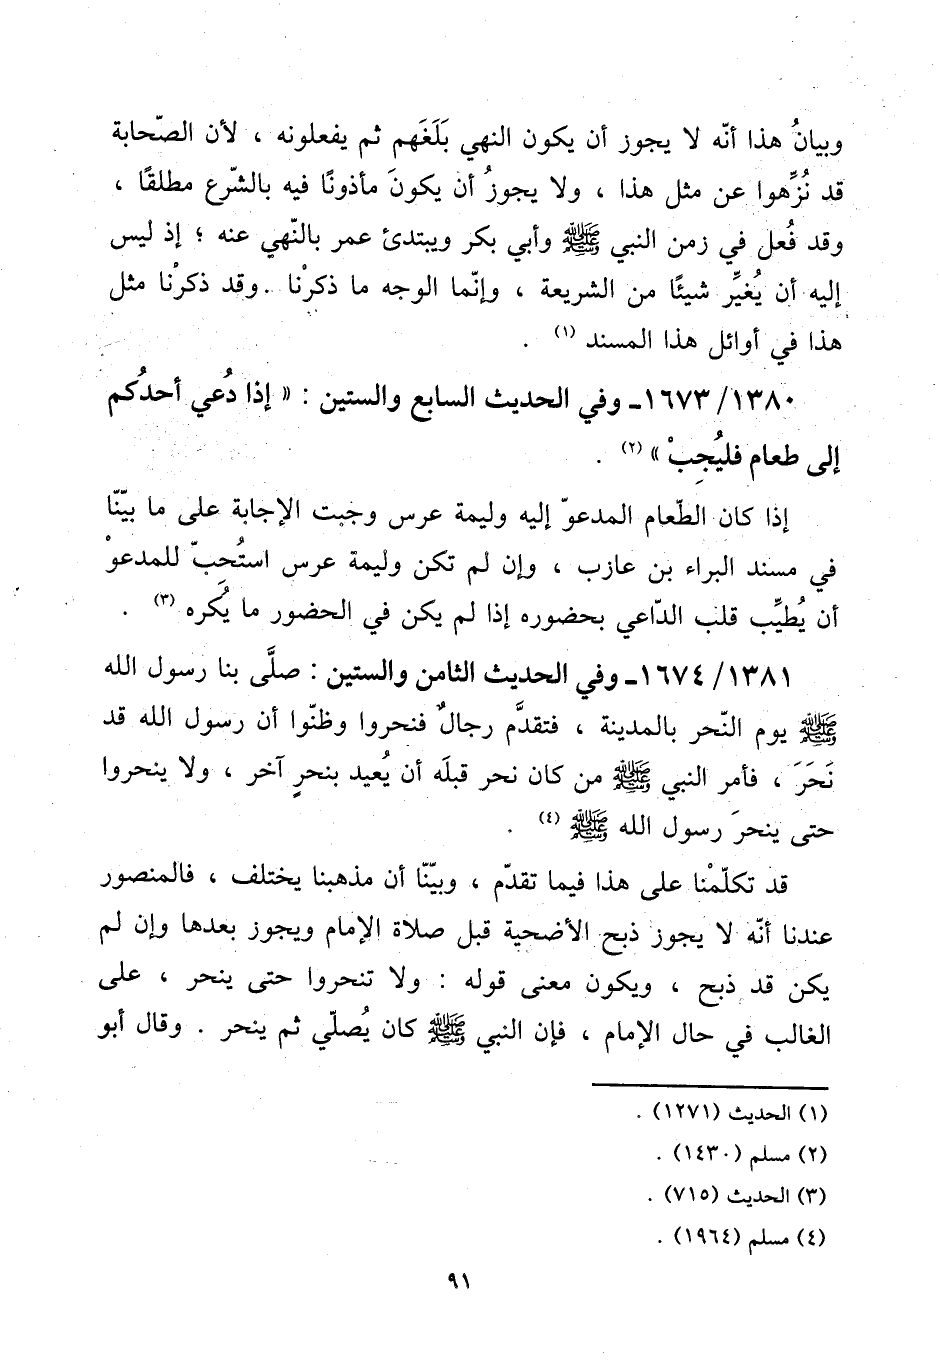 وبيانُ هذا أنّه لا يجوز أن يكون النهي بَلَغَهم ثم يفعلونه ، لأن الصّحابة
قد نُزِّهوا عن مثل هذا ، ولا يجوزُ أن يكونَ مأذونًا فيه بالشّرع مطلقًا ،
وقد فُعل في زمن النبي ﷺ وأبي بكر ويبتدئ عمر بالنّهي عنه ؛ إذ ليس
إليه أن يُغيِّر شيئًا من الشريعة ، وإنّما الوجه ما ذكرْنا . وقد ذكرْنا مثل
هذا في أوائل هذا المسند (١) .
١٣٨٠/ ١٦٧٣ـ وفي الحديث السابع والستين : « إذا دُعي أحدُكم
إلى طعام فليُجِبْ » (٢) .
إذا كان الطّعام المدعوّ إليه وليمة عرس وجبت الإجابة على ما بيّنّا
في مسند البراء بن عازب ، وإن لم تكن وليمة عرس استُحِبّ للمدعوْ
أن يُطيِّب قلب الدّاعي بحضوره إذا لم يكن في الحضور ما يُكَره (٣) .
١٣٨١/ ١٦٧٤ـ وفي الحديث الثامن والستين : صلَّى بنا رسول الله
ﷺ يوم النّحر بالمدينة ، فتقدَّم رجالٌ فنحروا وظنّوا أن رسول الله قد
نَحَرَ ، فأمر النبي ﷺ من كان نحر قبلَه أن يُعيد بنحرٍ آخر ، ولا ينحروا
حتى ينحرَ رسول الله ﷺ (٤) .
قد تكلّمْنا على هذا فيما تقدّم ، وبيّنّا أن مذهبنا يختلف ، فالمنصور
عندنا أنّه لا يجوز ذبح الأضحية قبل صلاة الإمام ويجوز بعدها وإن لم
يكن قد ذبح ، ويكون معنى قوله : ولا تنحروا حتى ينحر ، على
الغالب في حال الإمام ، فإن النبي ﷺ كان يُصلّي ثم ينحر . وقال أبو
(١) الحديث (١٢٧١) .
(٢) مسلم (١٤٣٠) .
(٣) الحديث (٧١٥) .
(٤) مسلم (١٩٦٤) .
٩١